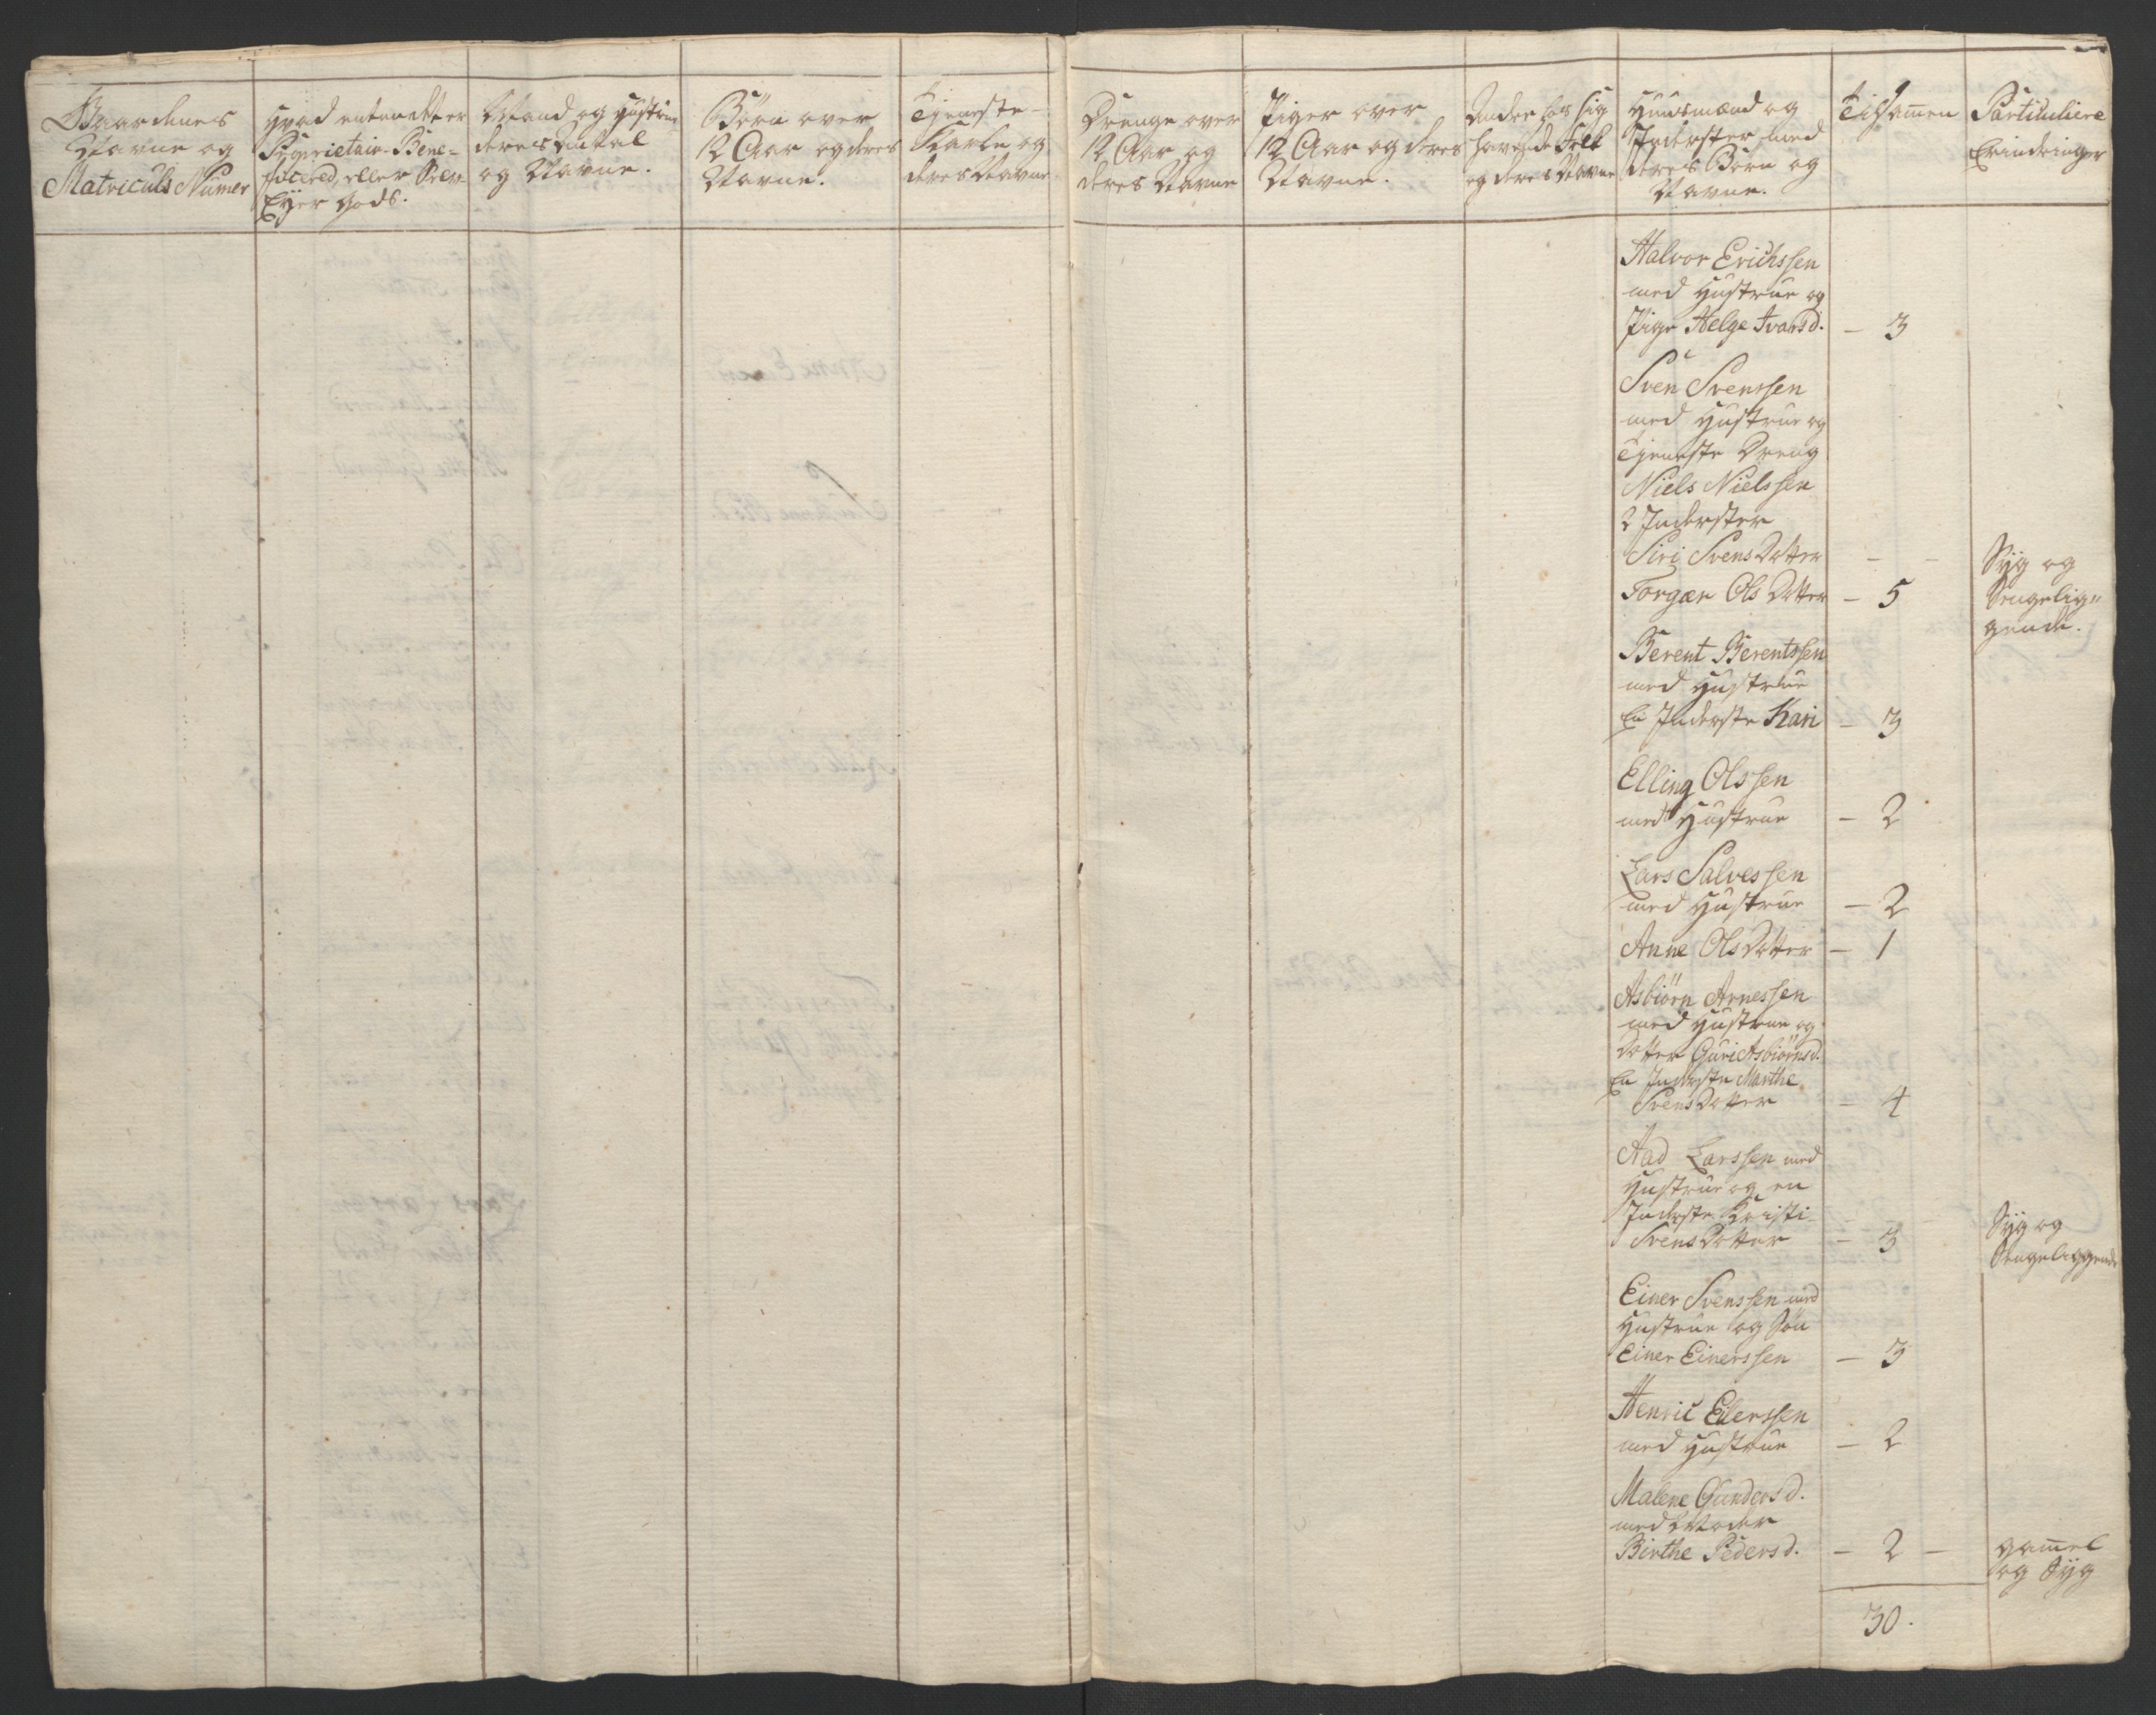 Gaardenes
Navne og
Matriculs Numer
Hvad enten det er
Proprietair-Bene-
ficered, eller Selv
Eÿer Gods.
Mand og Hustru
deres Antal
og Navne.
Børn over
12 Aar og deres
Navne.
Tjeneste-
Karle og
deres Navne
Drenge over
12 Aar og
deres Navne
Piger over
12 Aar og deres
Navne.
Andre hos sig
havende Folk
og deres Navne
Huusmænd og
Inderster med
deres Børn og
Navne.
Tilsamen
Particuliere
Erindringer
Halvor Erichssen
med Hustrue og
Pige Helge Ivarsd. – 3
Sven Svenssen
med Hustrue og
Tjeneste Dreng
Niels Nielssen
2 Inderster
Siri Svens Datter – – Sÿg og
Torgær Ols Datter – 5 Sengelig=
gende.
Berent Berentssen
med Hustrue
En Inderste Kari – 3
Elling Olssen
med Hustrue – 2
Lars Salvessen
med Hustrue – 2
Anne Ols Datter – 1
Asbiørn Arnessen
med Hustrue og
Datter Guri Asbiørnsd.
En Inderste Marthe
Svens Datter – 4
Aad Larssen med
Hustrue og en
Inderste Kristi – – Sÿg og
Svens Datter – 3 Sengeliggende
Einer Svenssen med
Hustrue og Søn
Einer Einerssen – 3
Henric Eilerssen
med Hustrue – 2
Malene Gundersd.
med Moder
Birthe Pedersd. – 2 – gamel
og Sÿg
30.